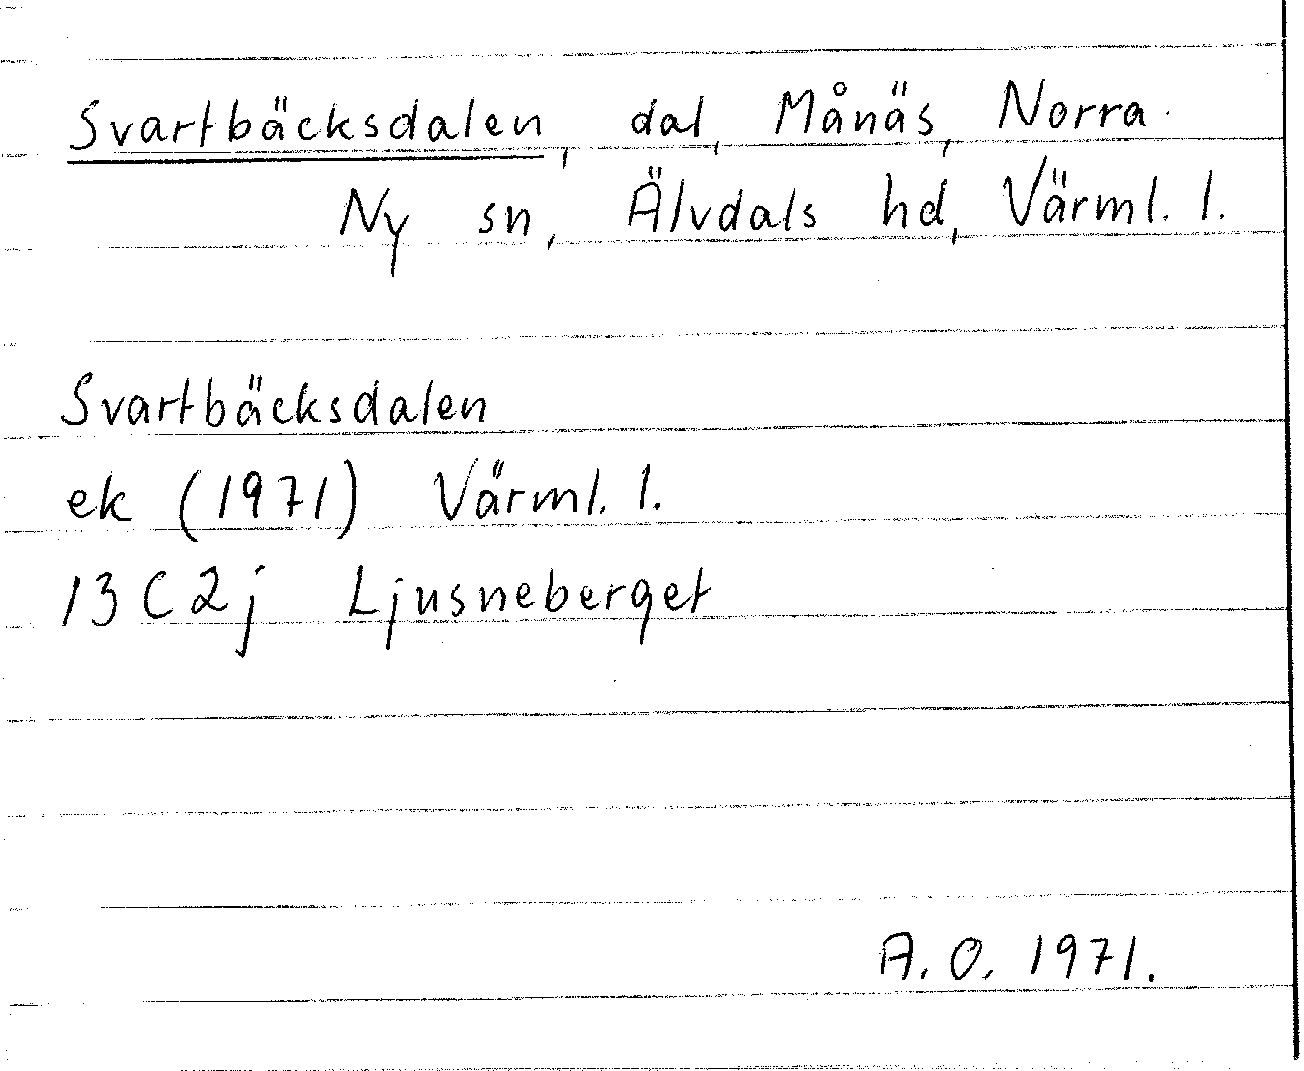 Svartbäcksdalen, dal, Månäs, Norra
Ny sn, Älvdals hd, Värml. l.
Svartbäcksdalen
ek (1971) Värml. l.
13 C 2 j Ljusneberget
A. O. 1971.